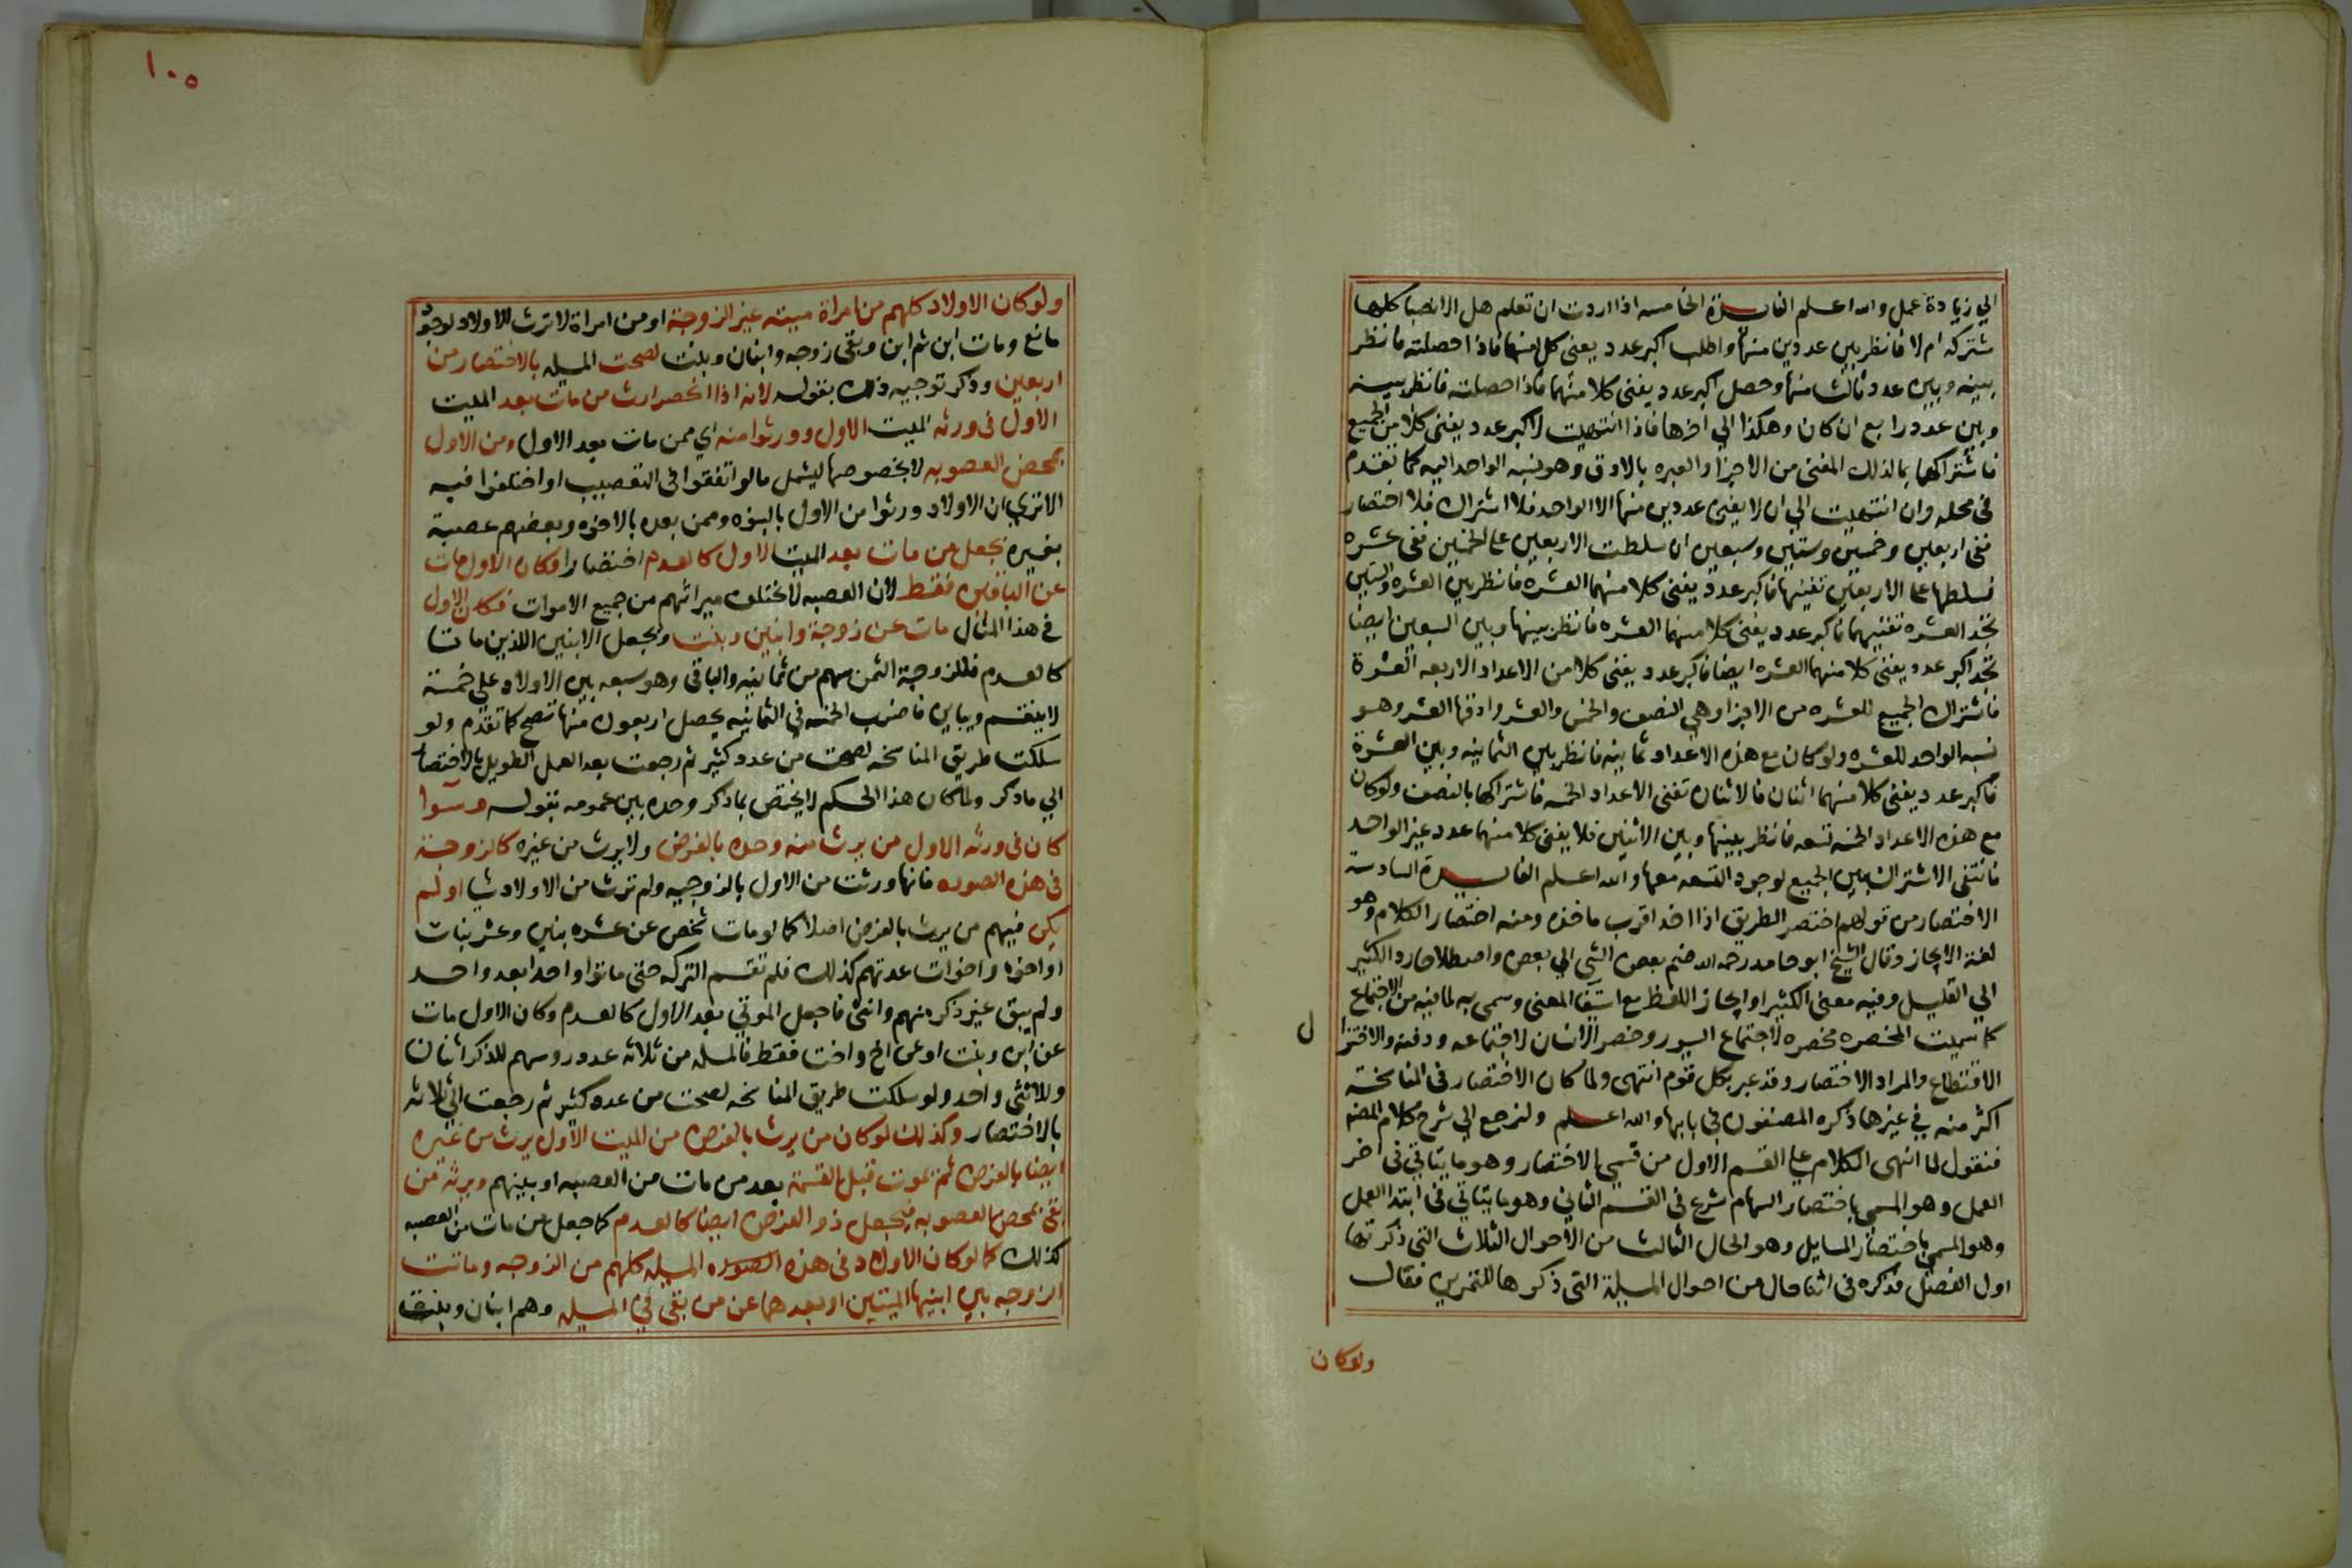 الي زيادة عمل والله اعلم الفايدة الخامسه اذا اردت ان تعلم هل الانصبا كلها
مشتركه ام لا فانظر بين عددين منها واطلب اكبر عدد يفنى كل منهما فاذا حصلته فانظر
بينه وبين عدد ثالث منها وحصل اكبر عدد يفنى كلا منهما فاذا حصلته فانظر بينه
وبين عدد رابع ان كان وهكذا الي اخرها فاذا انتهيت لاكبر عدد يفنى كلا من الجميع
فاشتراكها بما لذلك المفنى من الاجزا والعبره بالادق وهو نسبه الواحد اليه كما تقدم
فى محله وان انتهيت الي ان لا يفنى عددين منها الا الواحد فلا اشتراك فلا اختصار
ففى اربعين وخمسين وستين وسبعين ان سلطت الاربعين على الخمسين تفى عشره
فسلطها على الاربعين تفنيها فاكبر عدد يفنى كلا منهما العشره فانظر بين العشره والستين
تجد العشره تفنيهما فاكبر عدد يفنى كلا منهما العشره فانظر بينها وبين السبعين ايضا
تجد اكبر عدد يفنى كلا منهما العشره ايضا فاكبر عدد يفنى كلا من الاعداد الاربعه العشرة
فاشتراك الجميع للعشره من الاجزا وهي النصف والخمس والعشر وادقها العشر وهو
نسبه الواحد للعشره ولو كان مع هذه الاعداد ثمانيه فانظر بين الثمانيه وبين العشرة
فاكبر عدد يفنى كلا منهما اثنان فالاثنان تفنى الاعداد الخمسه فاشتراكها بالنصف ولو كان
مع هذه الاعداد الخمسه تسعه فانظر بينها وبين الاثنين فلا يفنى كلا منهما عدد غير الواحد
فانتفى الاشتراك بين الجميع لوجود التسعه معها والله اعلم الفايدة السادسة
الاختصار من قولهم اختصر الطريق اذا اخذ اقرب ماخذه ومنه اختصار الكلام وهو
لغة الايجاز وقال الشيخ ابو حامد رحمه الله ضم بعض الشي الي بعض واصطلاحا رد الكثير
الي القليل وفيه معنى الكثير او ايجاز اللفظ مع استيفا المعنى وسمى به لما فيه من الاجتماع
كما سميت المخصره مخصره لاجتماع السيور وخصر الانسان لاجتماعه ودقته والاختزا
ل
الاقتطاع والمراد الاختصار وقد عبر بكل قوم انتهى ولما كان الاختصار فى المناسخة
اكثر منه في غيرها ذكره المصنفون في بابها والله اعلم ولنرجع الي شرح كلام المصنه
فنقول لما انهى الكلام على القسم الاول من قسمي الاختصار وهو ما يتاتي فى اخر
العمل وهو المسمى باختصار السهام شرع فى القسم الثاني وهو ما يتاتي فى ابتدا العمل
وهو المسمى باختصار المسايل وهو الحال الثالث من الاحوال الثلاث التى ذكرتها
اول الفصل فذكره فى اثنا حال من احوال المسيلة التى ذكرها للتمرين فقال
ولو كان
١٠٥
ولو كان الاولاد كلهم من امراة ميته غير الزوجة او من امراة لا ترث الاولاد لوجود
مانع ومات ابن ثم ابن وبقى زوجه وابنان وبنت لصحت المسيله بالاختصار من
اربعين وذكر توجيه ذلك بقوله لانه اذا انحصر ارث من مات بعد الميت
الاول فى ورثه الميت الاول وورثوا منه اي ممن مات بعد الاول ومن الاول
بمحض العصوبه لا بخصوصها ليشمل ما لو اتفقوا فى التعصيب او اختلفوا فيه
الا ترى ان الاولاد ورثوا من الاول بالبنوه وممن بعده بالاخوه وبعضهم عصبة
بغيره نجعل من مات بعد الميت الاول كالعدم اختصارا فكان الاول مات
عن الباقين فقط لان العصبه لا يختلف ميراثهم من جميع الاموات فكان الاول
فى هذا المثال مات عن زوجة وابنين وبنت ونجعل الابنين اللذين ماتا
كالعدم فللزوجة الثمن سهم من ثمانيه والباقي وهو سبعه بين الاولاد على خمسة
لا ينقسم ويباين فاضرب الخمسه في الثمانيه يحصل اربعون منها تصح كما تقدم ولو
سلكت طريق المناسخه لصحت من عدد كثير ثم رجعت بعد العمل الطويل بالاختصار
الي ما ذكر ولما كان هذا الحكم لا يختص بما ذكر وحده بين عمومه بقوله وسوا
كان فى ورثه الاول من يرث منه وحده بالفرض ولا يرث من غيره كالزوجة
فى هذه الصوره فانها ورثت من الاول بالزوجيه ولم ترث من الاولاد شيا او لم
يكن فيهم من يرث بالفرض اصلا كما لو مات شخص عن عشره بنين وعشر بنات
او اخوه واخوات عدتهم كذلك فلم تقسم التركه حتى ماتوا واحدا بعد واحد
ولم يبق غير ذكر منهم وانثى فاجعل الموتي بعد الاول كالعدم وكان الاول مات
عن ابن وبنت او عن اخ واخت فقط فالمسله من ثلاثه عدد روسهم للذكر اثنان
وللانثى واحد ولو سلكت طريق المناسخه لصحت من عدد كثير ثم رجعت الي ثلاثه
بالاختصار وكذلك لو كان من يرث بالفرض من الميت الاول يرث من غيره
ايضا بالفرض ثم يموت قبل القسمة بعد من مات من العصبه او بينهم ويرثه من
بقى بمحض العصوبه فيجعل ذو الفرض ايضا كالعدم كما جعل من مات من العصبه
كذلك كما لو كان الاولاد فى هذه الصوره المسيله كلهم من الزوجه وماتت
الزوجه بين ابنيها الميتين او بعدهما عن من بقى في المسيله وهم ابنان وبنت